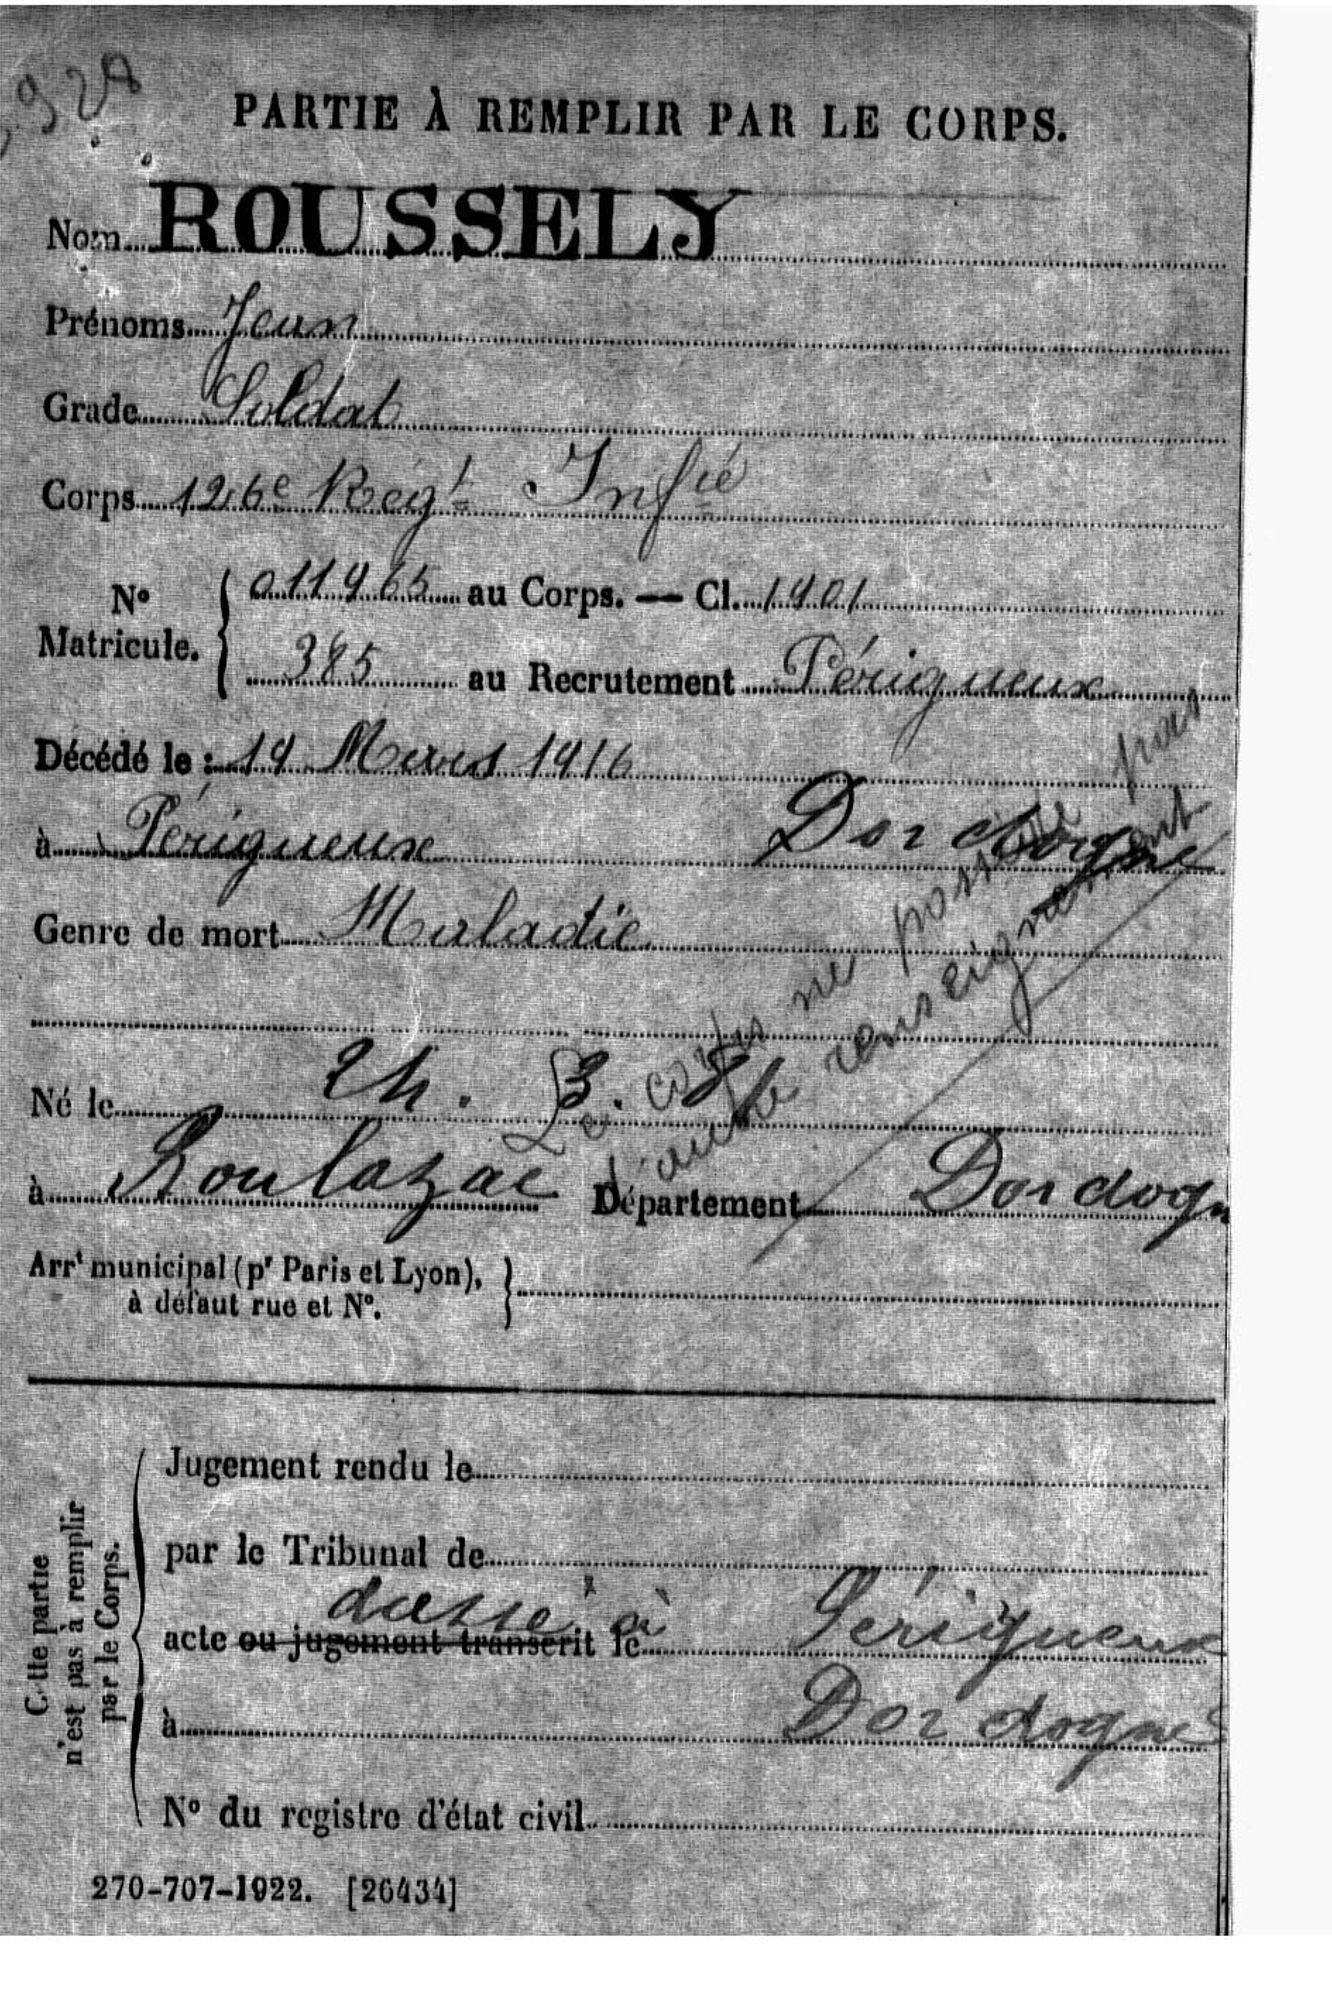 928
PARTIE À REMPLIR PAR LE CORPS.
Nom ROUSSELY
Prénoms Jean
Grade Soldat
Corps 126e Régt Infie
No Matricule. 011965 au Corps. — Cl. 1901
385 au Recrutement Périgueux
Décédé le : 19 Mars 1916
à Périgueux Dordogne
Genre de mort Maladie
Le corps ne possède pas
d'autre renseignement
Né le 24. 3. 81
à Boulazac Département Dordogn
Arrt municipal (pr Paris et Lyon),
à défaut rue et No.
Cette partie
n'est pas à remplir
par le Corps.
Jugement rendu le
par le Tribunal de
dressé à Périgueux
acte ou jugement transcrit le
à Dordogne
No du registre d'état civil
270-707-1922. [26434]